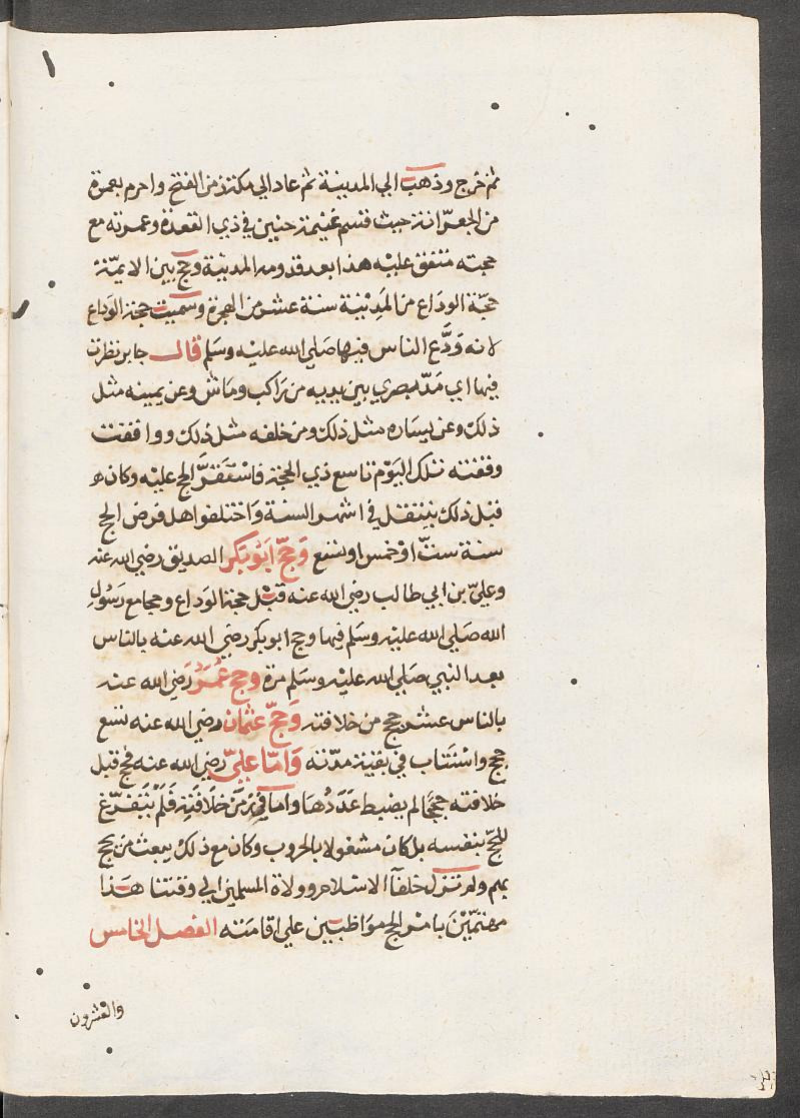 ثم خرج وذهب الي المدينة ثم عاد الي مكة زمن الفتح واحرم بعمرة
من الجعرّانة حيث قسم غنيمة حنين في ذي القعدة وعمرته مع
حجته متفق عليه هذا بعد قدومه المدينة وحج بين الايمّة
حجّة الوداع من المدِينة سنة عشر من الهجرة وسميت حجة الوداع
لانه ودَّع الناس فيها صَلي الله عليه وسَلم قال جابر نظرت
فيها اي مَدّ بصري بين يديه من رَاكب ومَاش وعن يمينه مثل
ذلك وعن يسَاره مثل ذلك ومن خلفه مثل ذلك ووافقت
وقفته تلك اليَوْم تاسع ذي الحجة فاسْتقرَّ الحج عليْه وكان
قبْل ذلك ينتقل في اشهر السنة وَاختلفوا هل فرض الحج
سنة ستّ اوْ خمس او تسع وَحجّ ابَو بَكر الصديق رضي الله عنه
وعليّ بن ابي طالب رضي الله عنه قبْل حجة الوَداع وحجا مع رَسُولِ
الله صَلي الله عليْه وسَلم فيها وحج ابو بكر رضي الله عنه بالناس
بعد النبي صَلي الله عليْه وسَلم مرة وحج عُمَرُ رَضي الله عنه
بالناس عشر حجج من خلافته وَحجّ عثمان رضي الله عنه تسع
حجج واسْتَناب في بقية مدّته وَامّا عَليّ رضي الله عنه فحج قبل
خلافته حججًا لم يضبط عَدَدُهَا واما في زمَن خلافَتِهِ فَلَمْ يَتَفَرَّغ
للحجّ بنفسه بل كان مشغولا بالحروب وكان مع ذلك يبعث من يحج
بهم ولم تزل خلفآ الاسلام وولاة المسلمين الي وقتنا هَذا
مهتمّيْنَ بامْر الحج موَاظبين علي اقامَته الفصل الخامس
والعشرون